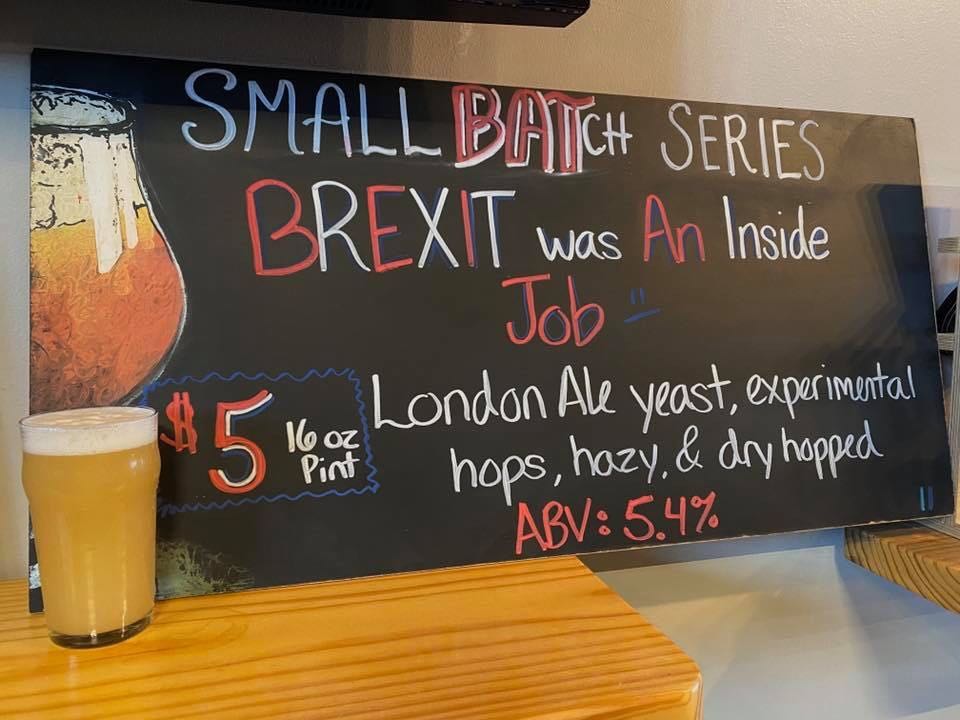 SMALL BATCH SERIES
BREXIT was An Inside
Job "
$5 16 oz
Pint
London Ale yeast, experimental
hops, hazy, & dry hopped
ABV: 5.4%